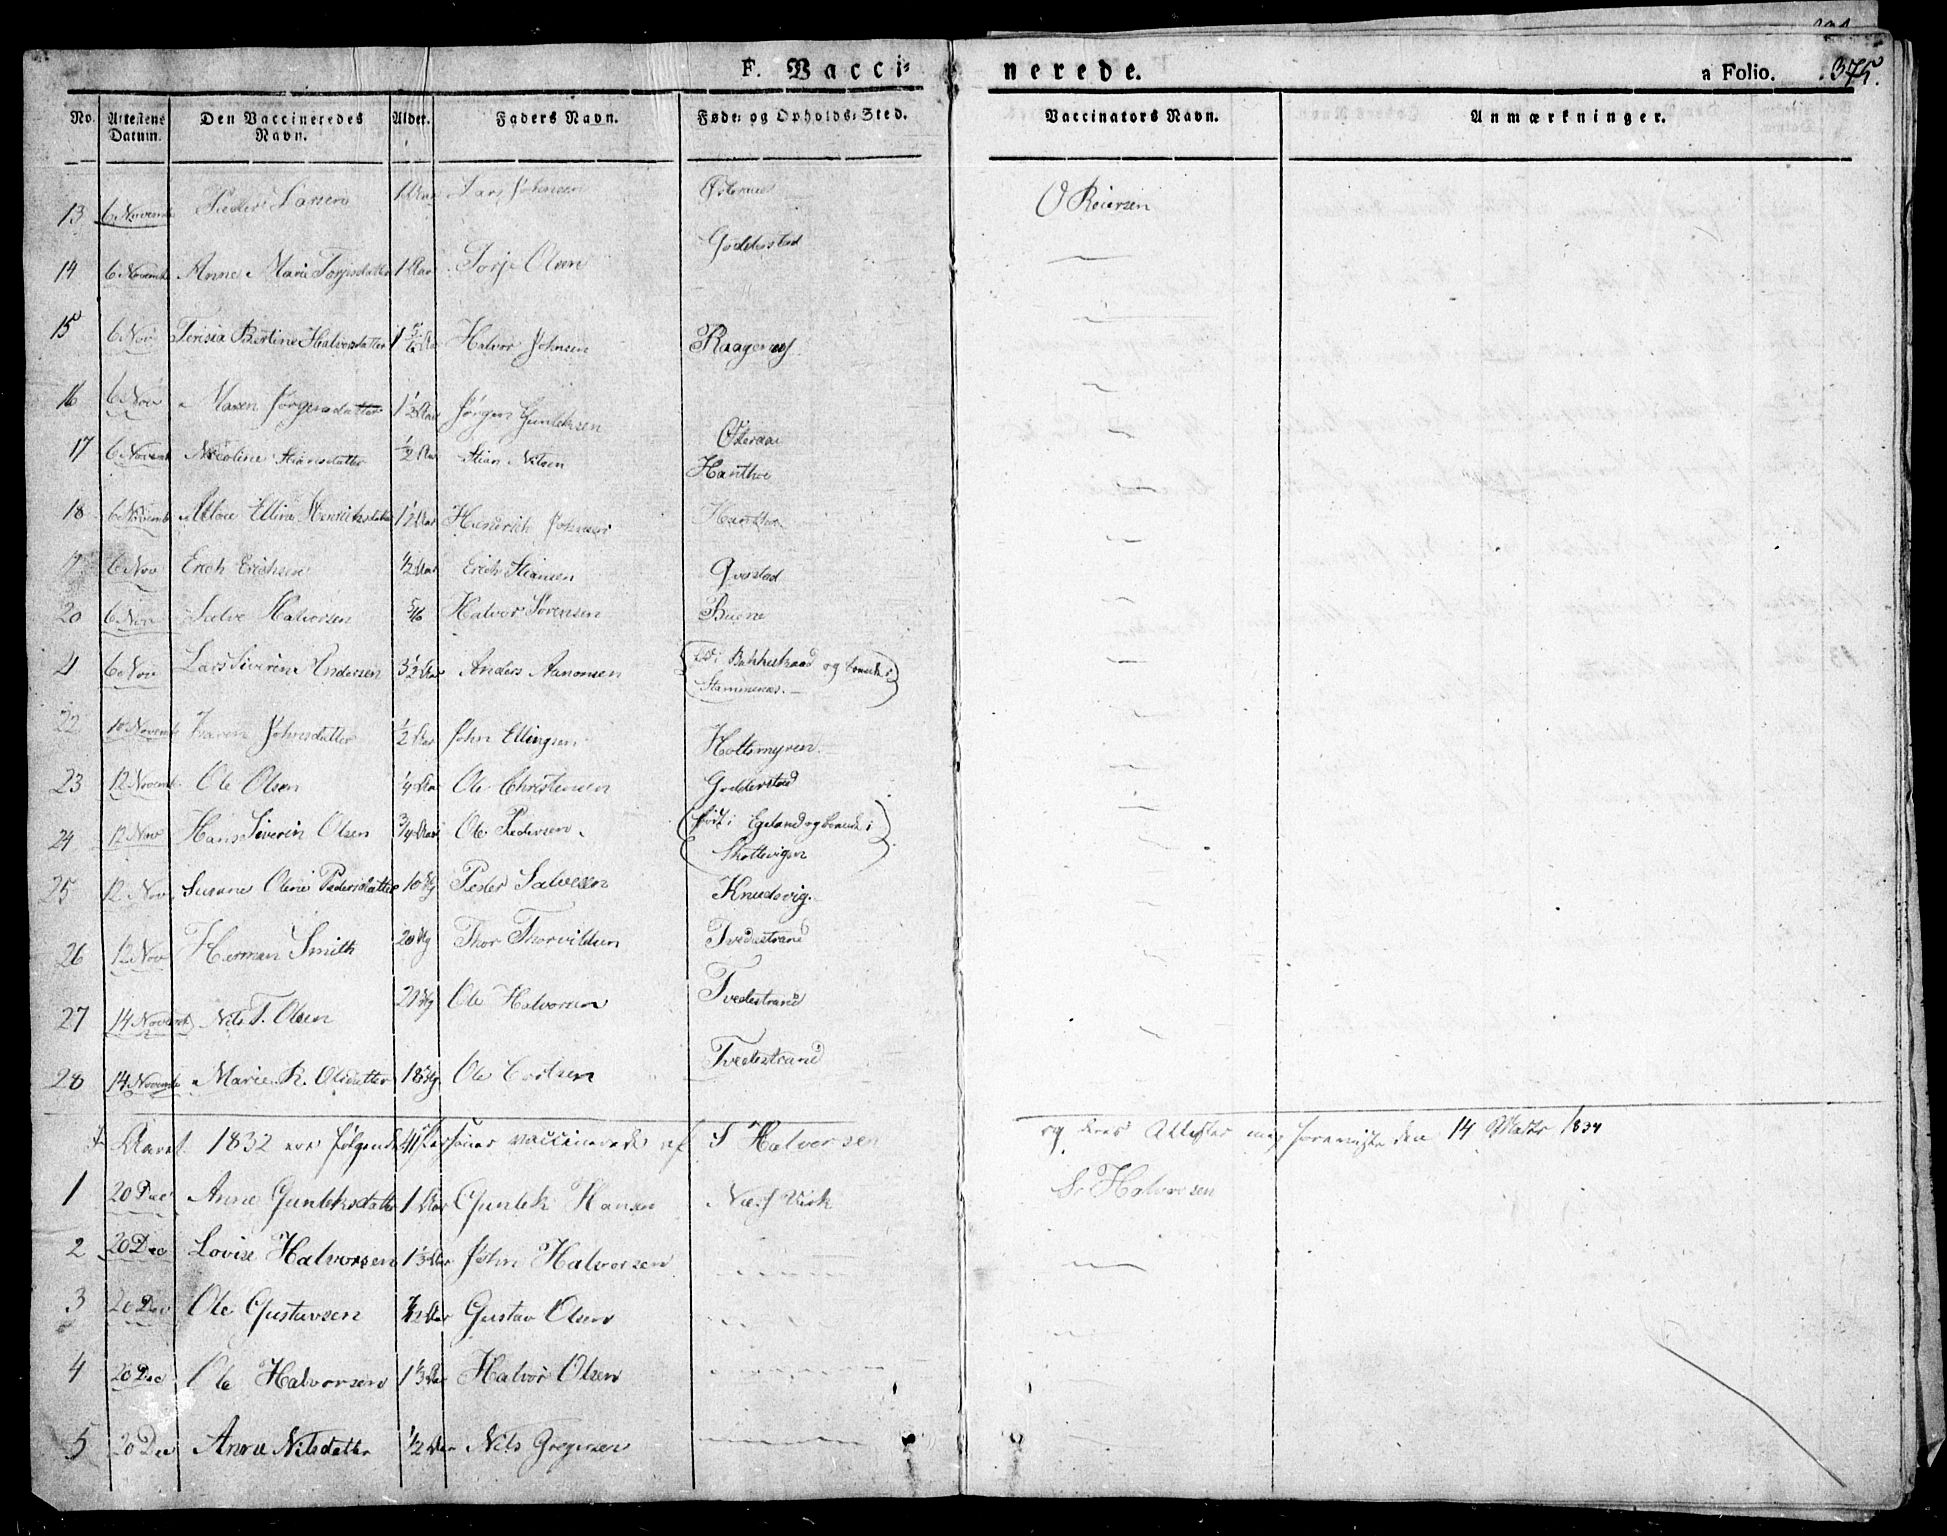 F. Vacci- nerede. a Folio. 375.
No. Attestens Datum. Den Vaccineredes Navn. Alder. Faders Navn. Føde- og Opholds-Sted. Vaccinators Navn. Anmærkninger.
13 6 Novemb Peder Larsen 1 Aar Lars Johnsen O Reiersen
14 6 Novemb Anne Marie Torjisdatter 1 Aar Torje Olsen Goddestad —
15 6 Nov Terisia Bertine Halvorsdatter 1 5/6 Aar Halvor Johnsen —
16 6 Nov Maren Jørgensdatter 1 1/2 Aar Jørgen Gunleksen Østeraae —
17 6 Novemb Nicoline Stiansdatter 1/2 Aar Stian Nilsen Hanthoe —
18 6 Novemb Ellina Henrichsdatter 1 1/2 Aar Hendrich Johnsen Hanthoe —
6 Nov Erich Erichsen 1/2 Aar Erich Stiansen Qvastad —
20 6 Nov Salve Halvorsen 5/6 Halvor Sørensen Buene —
21 6 Nov Lars Siverin Andersen 3 1/2 Aar Anders Aanonsen (Bakkestraad og boende i —
Stammenæs. —)
22 10 Novemb Karen Johnsdatter 1/2 Aar John Ellingsen Holtemyren. —
23 12 Novemb Ole Olsen 1/4 Aar Ole Christensen Godderstad —
24 12 Nov Hans Siverin Olsen 3/4 Aar Ole Pedersen. (født i Egeland og boende i —
Skottevigen)
25 12 Nov Susane Oline Pedersdatter 10 Ug Peder Salvesen Knudsvig. —
26 12 Nov Herman Smith 20 Ug Thor Thorvildsen Tvedestrand —
27 14 Novemb Nils T. Olsen 21 Ug Ole Halvorsen Tvedestrand —
28 14 Novemb Marie K. Olsdatter 18 Ug Ole Tvedestrand
I Aaret 1832 ere følgende 41 Personer vaccinerede af T Halvorsen og deres Attester mig foreviiste den 14 Martz 1834
1 20 Dec Anne Gunleksdatter 1 Aar Gunlek Hansen Næs Værk Halvorsen
2 20 Dec Lovise Halvorsen 1 1/3 Aar John Halvorsen — —
3 20 Dec Ole Gustavsen 1/2 Aar Gustav Olsen — —
4 20 Dec Ole Halvorsen 1 1/3 Aar Halvor Olsen —
5 20 Dec Anne Nilsdatter 1/2 Aar Nils Gregersen — —